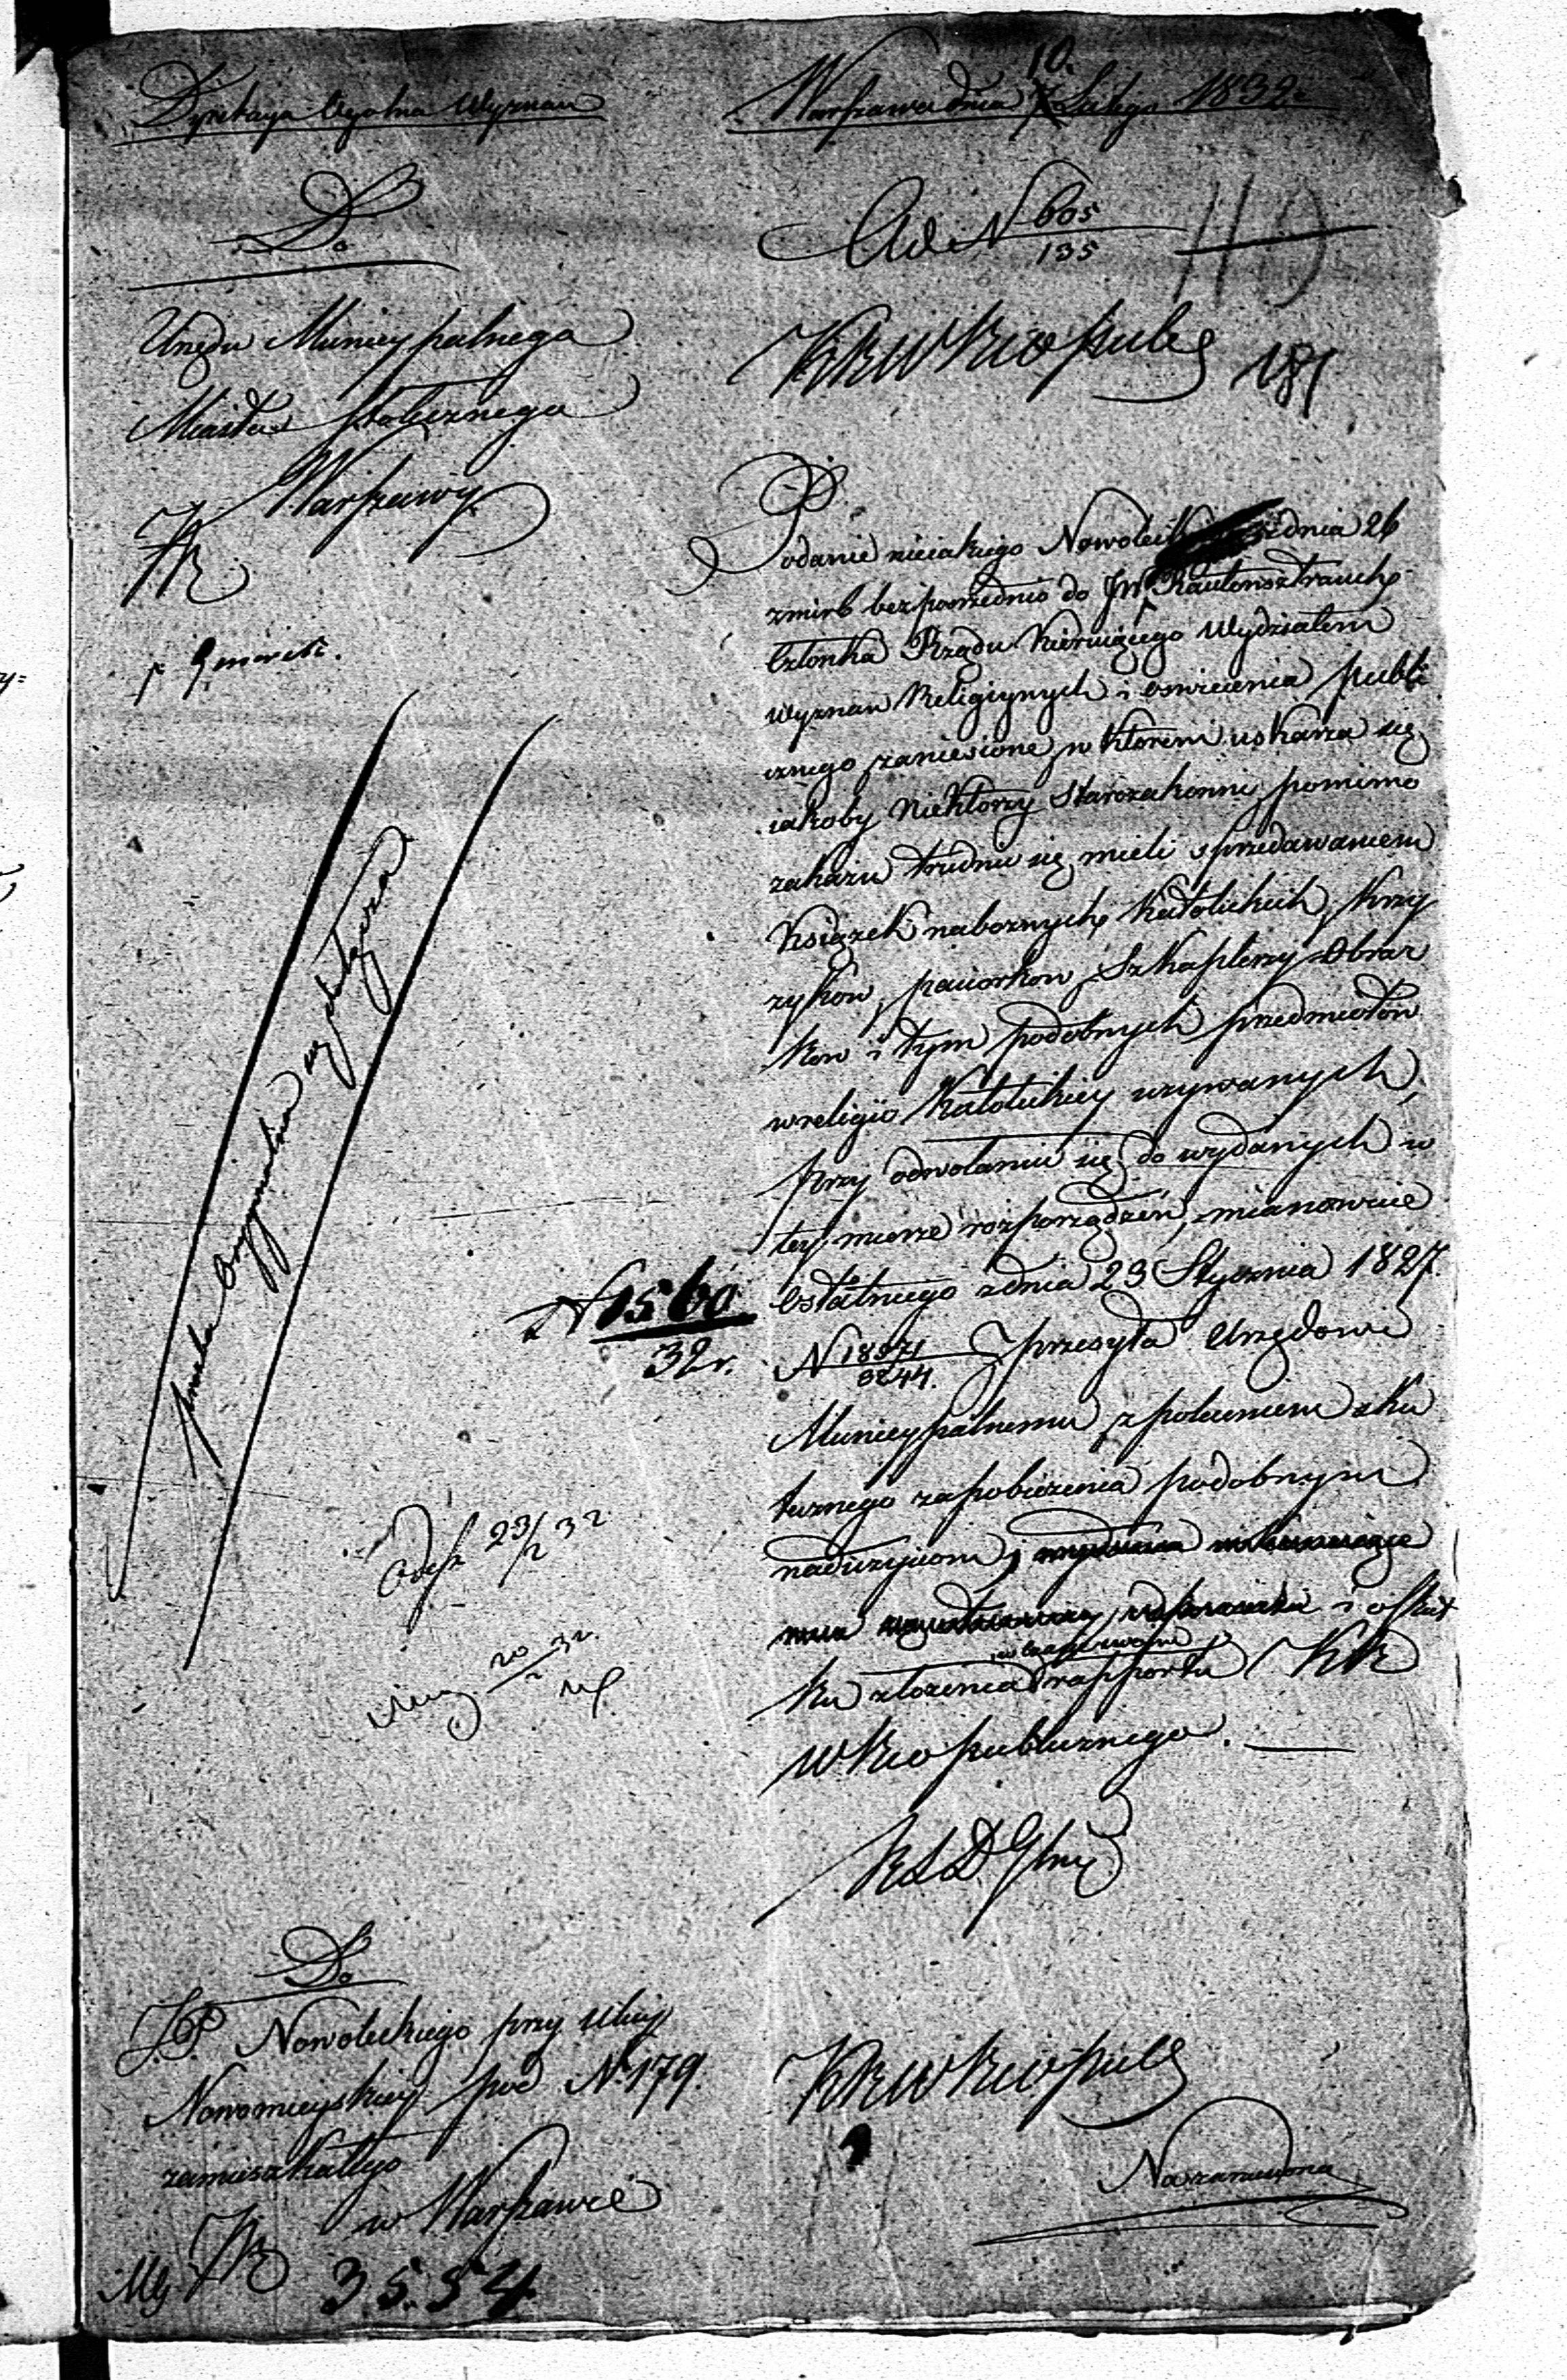 Dyrekcya Ogólna Wyznań
Warszawa dnia 10. Lutego 1832.
Do
Ad N 605/135
119
Urzędu Municypalnego
Miasta Stołecznego
Warszawy
KRWRiOpubl
181
Podanie nieiakiego Nowoleckiego zdnia 26
zmrb bezpośrednio do JW Rautensztrauch
Członka Rządu kieruiącego Wydziałem
Wyznań Religiynych i Oswiecenia publi
cznego zaniesione, w którem uskarza się
iakoby niektorzy Starozakonni pomimo
zakazu trudnić się mieli sprzedawaniem
Książek nabożnych Katolickich, Krzy
żyków, paciorków, Szkaplerzy Obraz
ków i tym podobnych przedmiotów
w religii Katolickiey używanych,
przy odwołaniu się do wydanych w
tey mierze rozporządzeń, mianowicie
ostatniego zdnia 23 Stycznia 1827.
N 18971/3244. przesyła Urzędowi
Municypalnemu z poleceniem sku
tecznego zapobieżenia podobnym
nadużyciom
i o skut
ku złożenia rapportu KR
WRiOpublicznego.
N 1560/32r.
oryginalna się dołącza
23/2 32
20/2 32
RSD Glny
Do
JP. Nowoleckiego przy ulicy
Nowomieyskiey pod N 179.
zamieszkałego
w Warszawie
KRWRiOpubl
3554